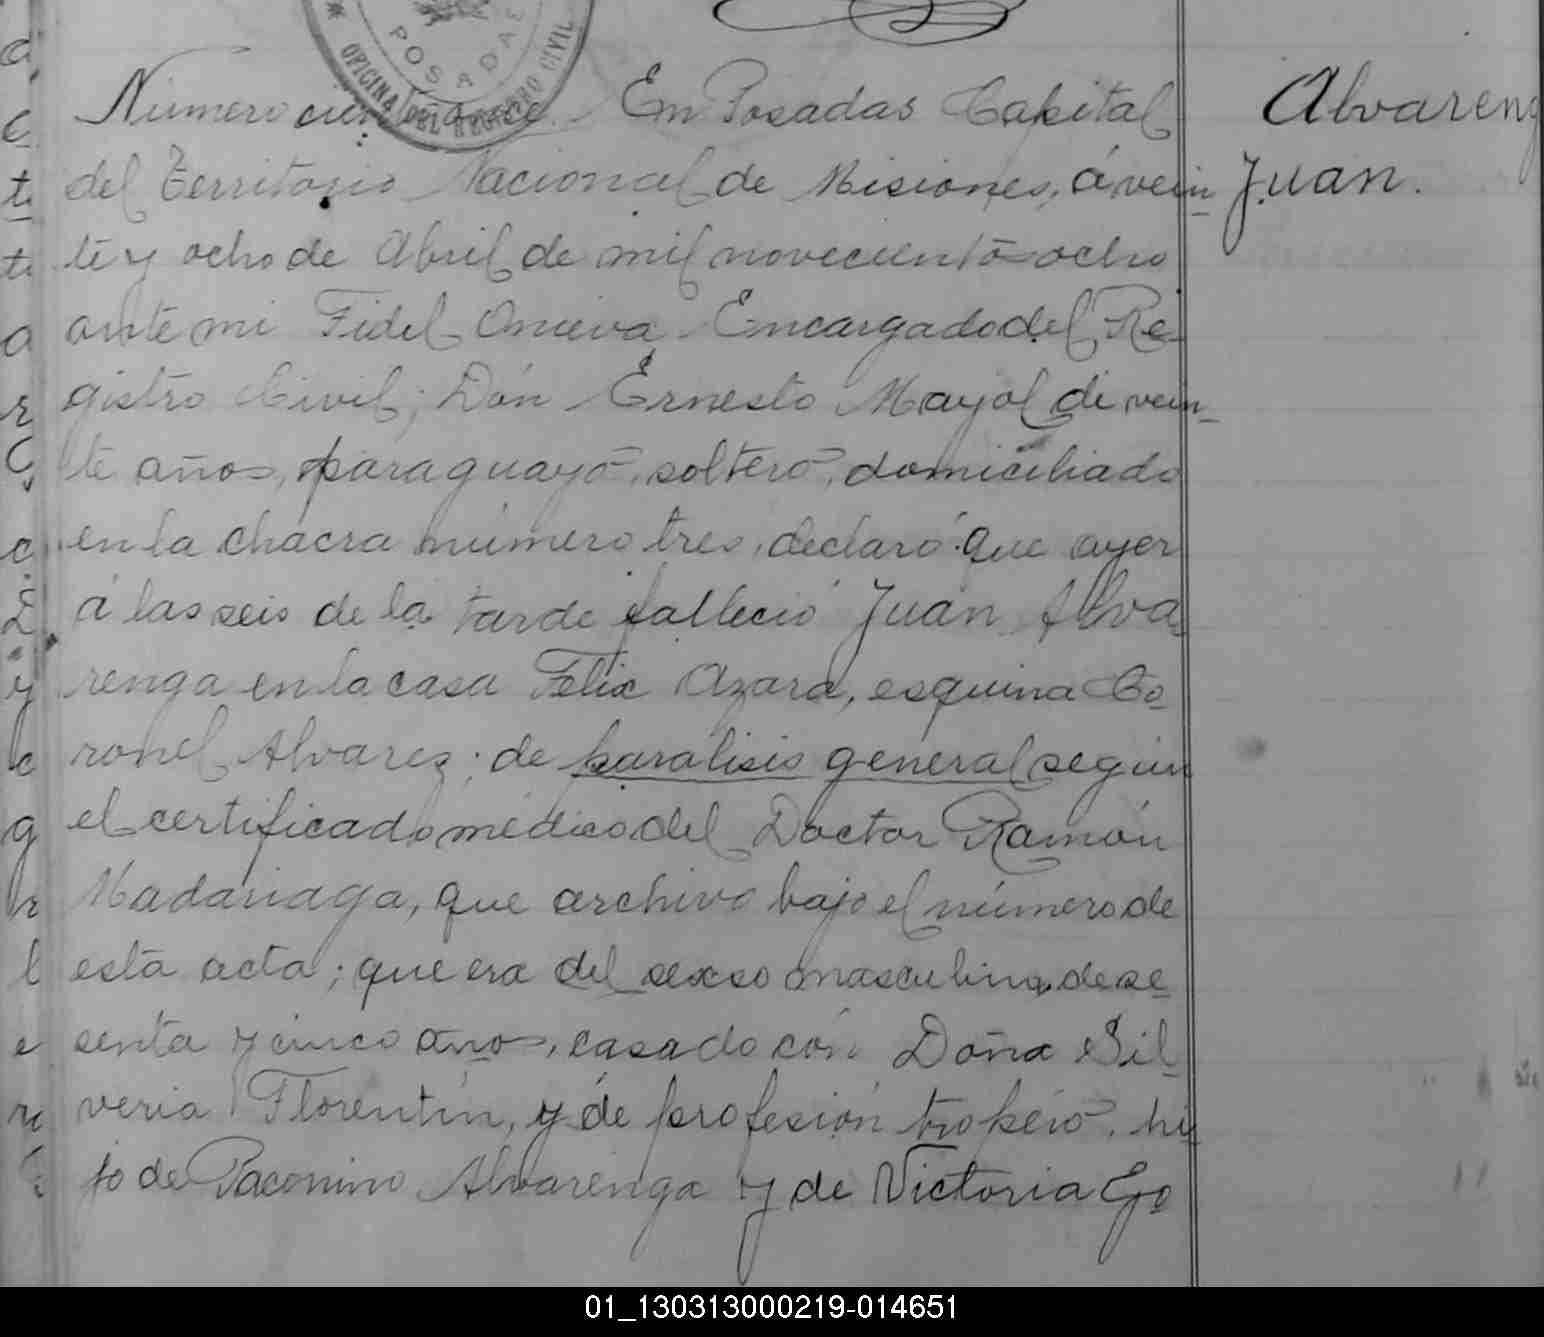 POSADAS
OFICINA DEL REGISTRO CIVIL
Número En Posadas Capital
del Territorio Nacional de Misiones, á vein
te y ocho de Abril de mil novecientos ocho
ante mi Fidel Onieva Encargado del Re
gistro Civil; Don Ernesto Mayol de vein
te años, paraguayo, soltero, domiciliado
en la chacra número tres, declaró: que ayer
á las seis de la tarde falleció Juan Alva
renga en la casa Felix Azara, esquina Co
ronel Alvarez; de paralisis general según
el certificado médico del Doctor Ramón
Madariaga, que archivo bajo el número de
esta acta; que era del sexso masculino, de se
senta y cinco años, casado con Doña Sil
veria Florentin, y de profesión tropero, hi
jo de Paconino Alvarenga y de Victoria Go
Alvareng
Juan.
01_130313000219-014651